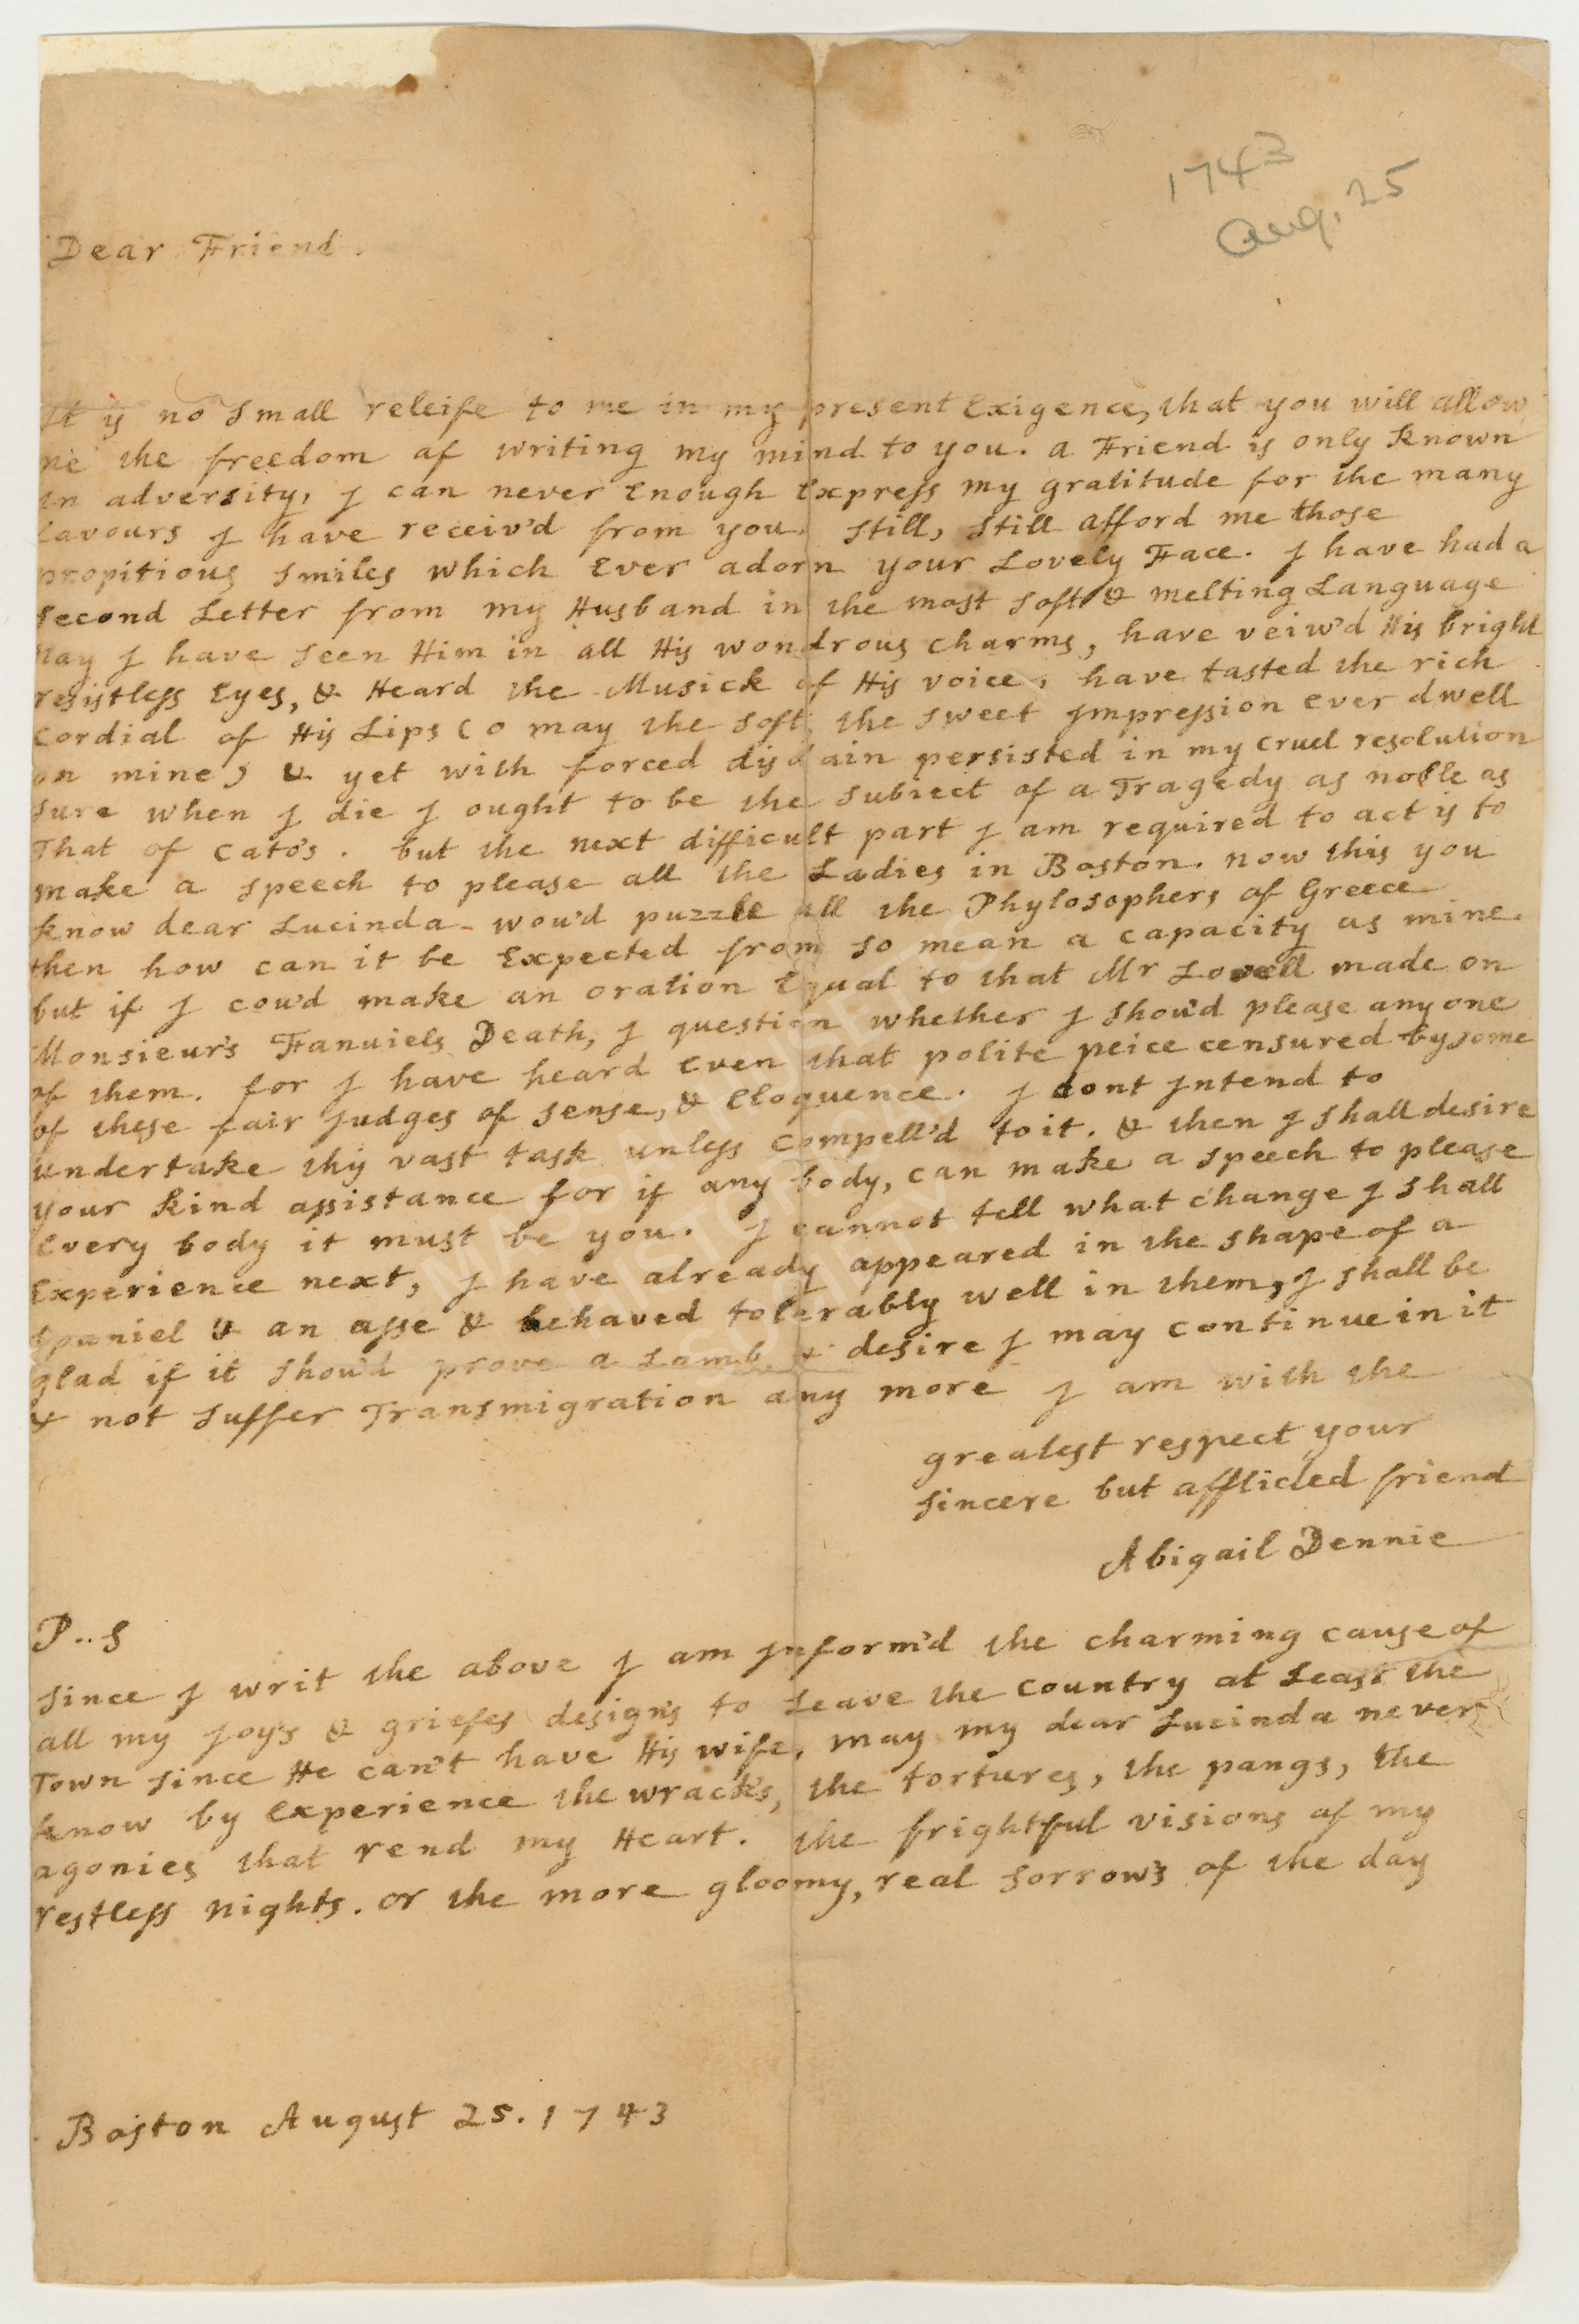 1743
Aug. 25
Dear Friend.
It is no small releife to me in my present Exigence, that you will allow
me the freedom of writing my mind to you. a Friend is only known
in adversity, I can never Enough Express my gratitude for the many
favours I have receiv'd from you. still, still afford me those
propitious smiles which Ever adorn your Lovely Face. I have had a
second Letter from my Husband in the most soft & melting Language
Nay I have seen Him in all His wondrous charms, have veiw'd His bright
resistless Eyes, & Heard the Musick of His voice, have tasted the rich
Cordial of His Lips (o may the soft the sweet Impression ever dwell
on mine) & yet with forced disdain persisted in my cruel resolution
sure when I die I ought to be the subject of a Tragedy as noble as
That of Cato's. but the next difficult part I am required to act is to
make a speech to please all the Ladies in Boston. now this you
know dear Lucinda wou'd puzzle all the Phylosophers of Greece
then how can it be Expected from so mean a capacity as mine.
but if I cou'd make an oration Equal to that Mr Lovell made on
Monsieur's Fanuiels Death, I question whether I shou'd please any one
of them. for I have heard Even that polite peice censured by some
of these fair Judges of sense, & Eloquence. I dont Intend to
undertake this vast task unless compell'd to it. & then I shall desire
your kind assistance for if any body, can make a speech to please
Every body it must be you. I cannot tell what change I shall
Experience next, I have already appeared in the shape of a
spaniel & an asse & behaved tolerably well in them, I shall be
glad if it shou'd prove a Lamb & desire I may continue in it
& not suffer Transmigration any more I am with the
greatest respect your
sincere but afflicted friend
Abigail Dennie
P..S
since I writ the above I am Inform'd the charming cause of
all my Joys & griefes design's to Leave the Country at Least the
Town since He can't have His wife, may my dear Lucinda never
know by Experience the wrack's, the tortures, the pangs, the
agonies that rend my Heart. the frightful visions of my
restless nights. or the more gloomy, real sorrows of the day
Boston August 25. 1743
MASSACHUSETTS
HISTORICAL
SOCIETY